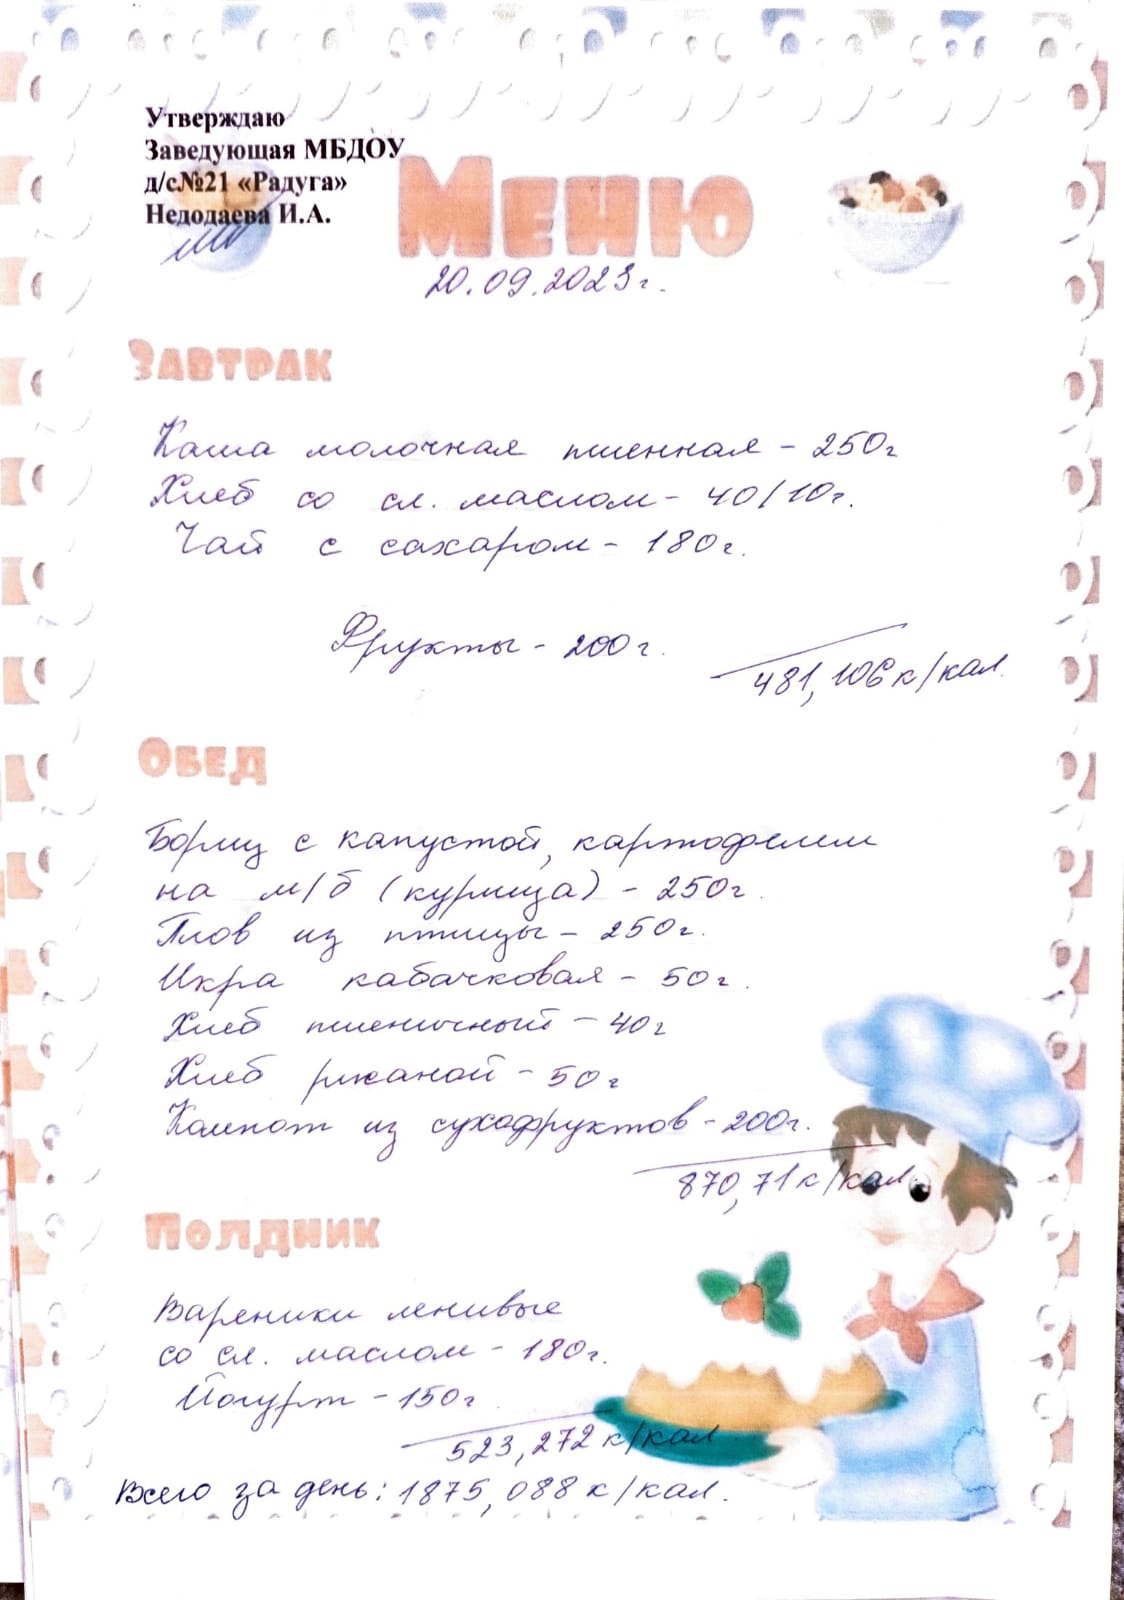 Утверждаю
Заведующая МБДОУ
д/с№21 «Радуга»
Недодаева И.А.
Меню
20.09.2023г.
Завтрак
Каша молочная пшенная - 250г
Хлеб со сл. маслом - 40/10г.
Чай с сахаром - 180г.
Фрукты - 200г.
481,106 к/кал.
Обед
Борщ с капустой, картофелем
на м/б (курица) - 250г.
Плов из птицы - 250г.
Икра кабачковая - 50г.
Хлеб пшеничный - 40г
Хлеб ржаной - 50г
Компот из сухофруктов - 200г.
870,71 к/кал
Полдник
Вареники ленивые
со сл. маслом - 180г.
Йогурт - 150г
523,272 к/кал
Всего за день: 1875,088 к/кал.